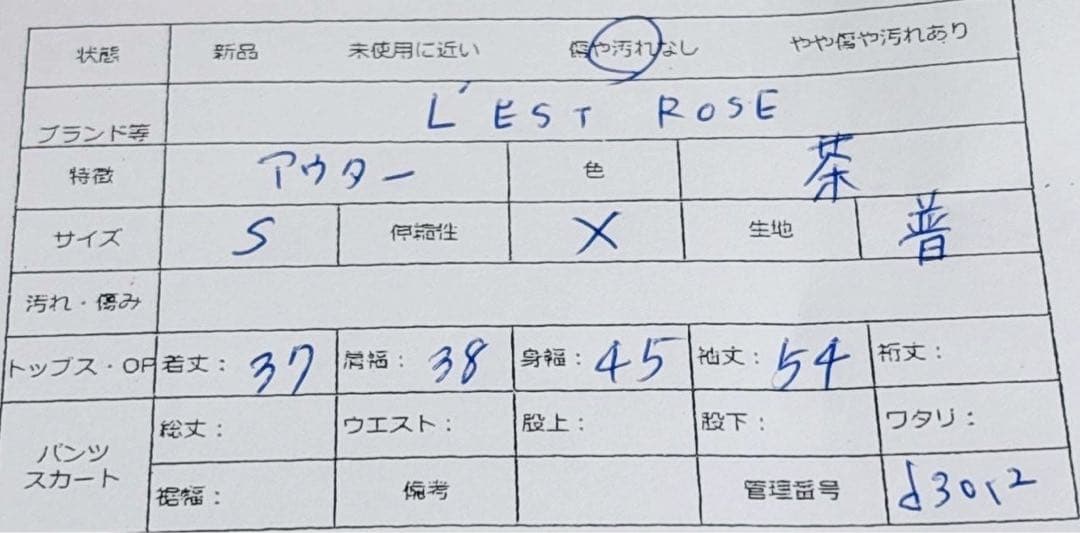 状態 新品 未使用に近い 傷や汚れなし やや傷や汚れあり
ブランド等 L'EST ROSE
特徴 アウター 色 茶
サイズ S 伸縮性 X 生地 普
汚れ・傷み
トップス・OP 着丈： 37 肩幅： 38 身幅： 45 袖丈： 54 裄丈：
パンツ
スカート
総丈： ウエスト： 股上： 股下： ワタリ：
裾幅： 備考 管理番号